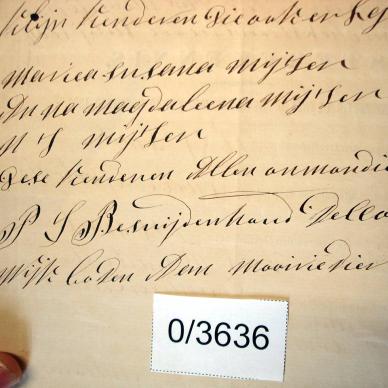 Zijn Kenderen die ook er
Maria Susana Mijsen
Anna Magdaleena Mijsen
M S Mijsen
Dese Kenderen Allen onmondi
P S Besuijdenhoud
Wijk boden Dem Mooirevier
0/3636